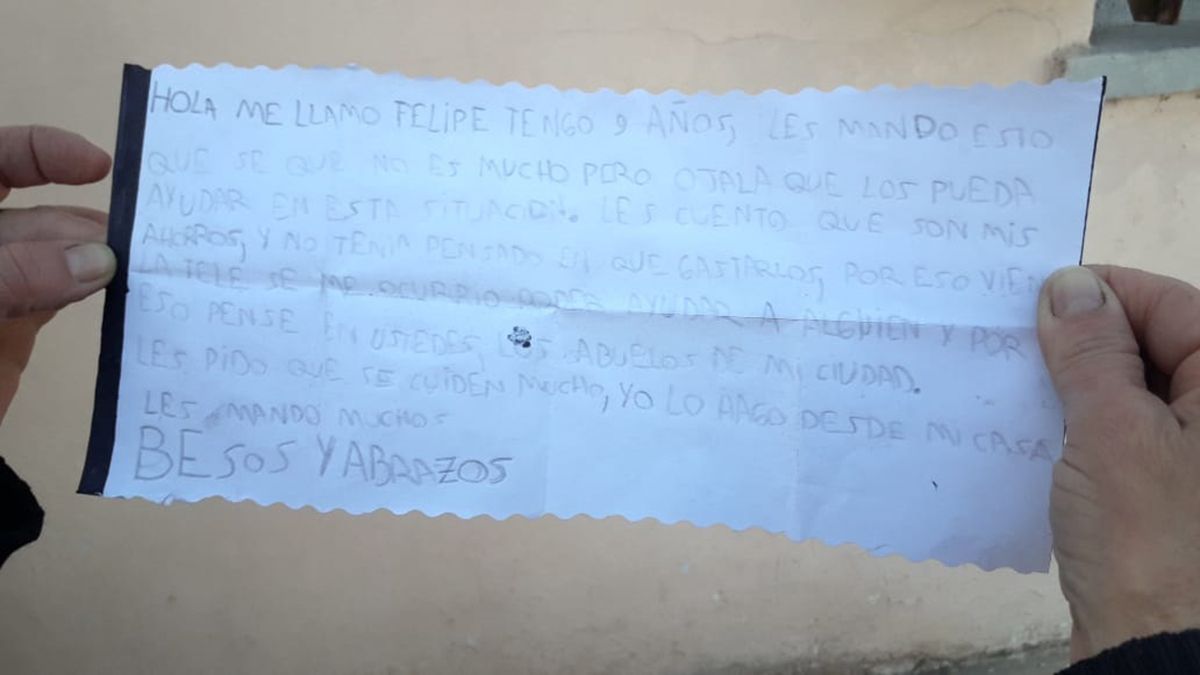 HOLA ME LLAMO FELIPE TENGO 9 AÑOS, LES MANDO ESTO
QUE SE QUE NO ES MUCHO PERO OJALA QUE LOS PUEDA
AYUDAR EN ESTA SITUACIÓN. LES CUENTO QUE SON MIS
AHORROS, Y NO TENIA PENSADO EN QUE GASTARLOS, POR ESO
LA TELE SE ME OCURRIO PODER AYUDAR A ALGUIEN Y POR
ESO PENSE EN USTEDES, LOS ABUELOS DE MI CIUDAD.
LES PIDO QUE SE CUIDEN MUCHO, YO LO HAGO DESDE MI CASA
LES MANDO MUCHOS
BESOS Y ABRAZOS